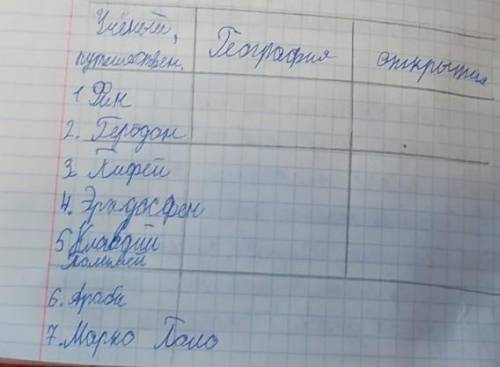 Учёный, География открытия
путешествен.
1 Фин
2. Геродот
3. Пифей
4. Эрадосфен
5 Клавдий
Птолемей
6. Арабы
7. Марко Поло